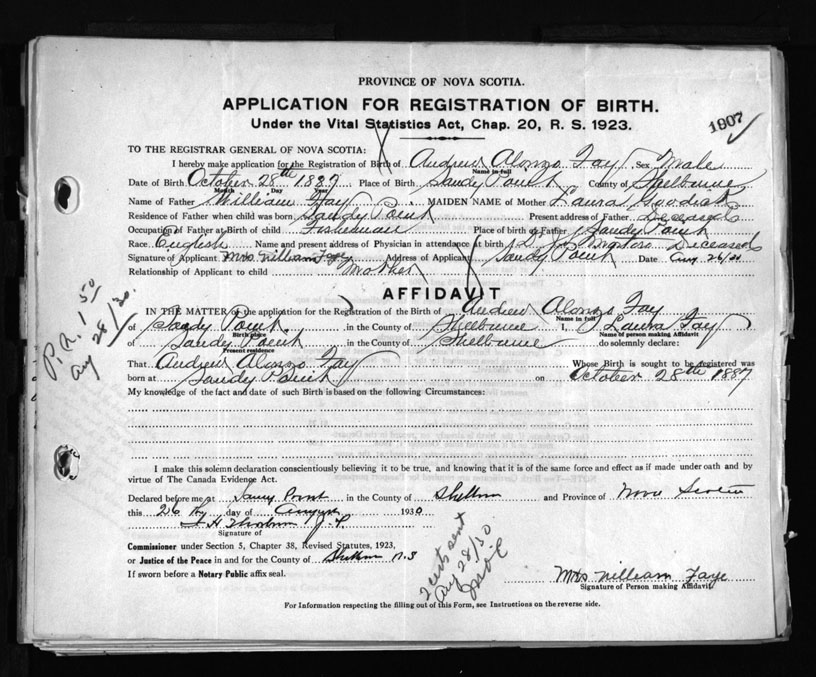 PROVINCE OF NOVA SCOTIA.
APPLICATION FOR REGISTRATION OF BIRTH.
Under the Vital Statistics Act, Chap. 20, R. S. 1923.
1807
TO THE REGISTRAR GENERAL OF NOVA SCOTIA:
I hereby make application for the Registration of Birth of Andrew Alonzo Fay Sex Male
Name in full
Date of Birth October 28th 1887 Place of Birth Sandy Point County of Shelburne
Month Day Year
Name of Father William Fay MAIDEN NAME of Mother Laura
Residence of Father when child was born Sandy Point Present address of Father Deceased
Occupation of Father at Birth of child Fisherman Birth place of Father Sandy Point
Race English Name and present address of Physician in attendance at birth Deceased
Signature of Applicant Mrs William Fay Address of Applicant Sandy Point Date Aug 26/30
Relationship of Applicant to child Mother
P. R. 1 50
Aug 28/30.
AFFIDAVIT
IN THE MATTER of the application for the Registration of the Birth of Andrew Alonzo Fay
Name in full
of Sandy Point in the County of Shelburne I, Laura Fay
Birth place Name of person making Affidavit
of Sandy Point in the County of Shelburne do solemnly declare:
Present residence
That Andrew Alonzo Fay Whose Birth is sought to be registered was
born at Sandy Point on October 28th 1887
My knowledge of the fact and date of such Birth is based on the following Circumstances:
I make this solemn declaration conscientiously believing it to be true, and knowing that it is of the same force and effect as if made under oath and by
virtue of The Canada Evidence Act.
Declared before me at Sandy Point in the County of Shelburne and Province of Nova Scotia
this 26th day of August 1930
J. P.
Signature of
Commissioner under Section 5, Chapter 38, Revised Statutes, 1923,
or Justice of the Peace in and for the County of Shelburne N.S
If sworn before a Notary Public affix seal.
2 certs sent
Aug 28/30
Mrs William Faye
Signature of Person making Affidavit
For Information respecting the filling out of this Form, see Instructions on the reverse side.